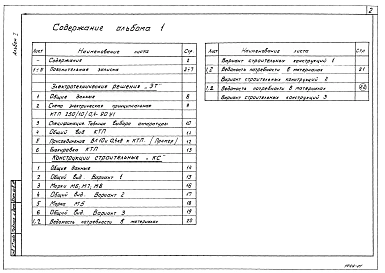 2
Альбом 1
Содержание альбома 1
Лист Наименование листа Стр.
- Содержание 2
1÷6 Пояснительная записка 2-7
Электротехнические решения „ЭТ"
1 Общие данные 8
2 Схема электрическая принципиальная 9
КТП 250/10/0,4-90У1
3 Спецификация. Таблица выбора аппаратуры 10
4 Общий вид КТП 11
5 Присоединение ВЛ 10 и 0,4кВ к КТП. (Пример) 12
6 Блокировка КТП 13
Конструкции строительные „КС"
1 Общие данные 14
2 Общий вид. Вариант 1 15
3 Марки МБ, М7, М8 16
4 Общий вид. Вариант 2 17
5 Марка М5 18
6 Общий вид. Вариант 3 19
1.2 Ведомость потребности в материалах 20
Лист Наименование листа Стр.
Вариант строительных конструкций 1
1.2 Ведомость потребности в материалах 21
Вариант строительных конструкций 2
1.2 Ведомость потребности в материалах 22
Вариант строительных конструкций 3